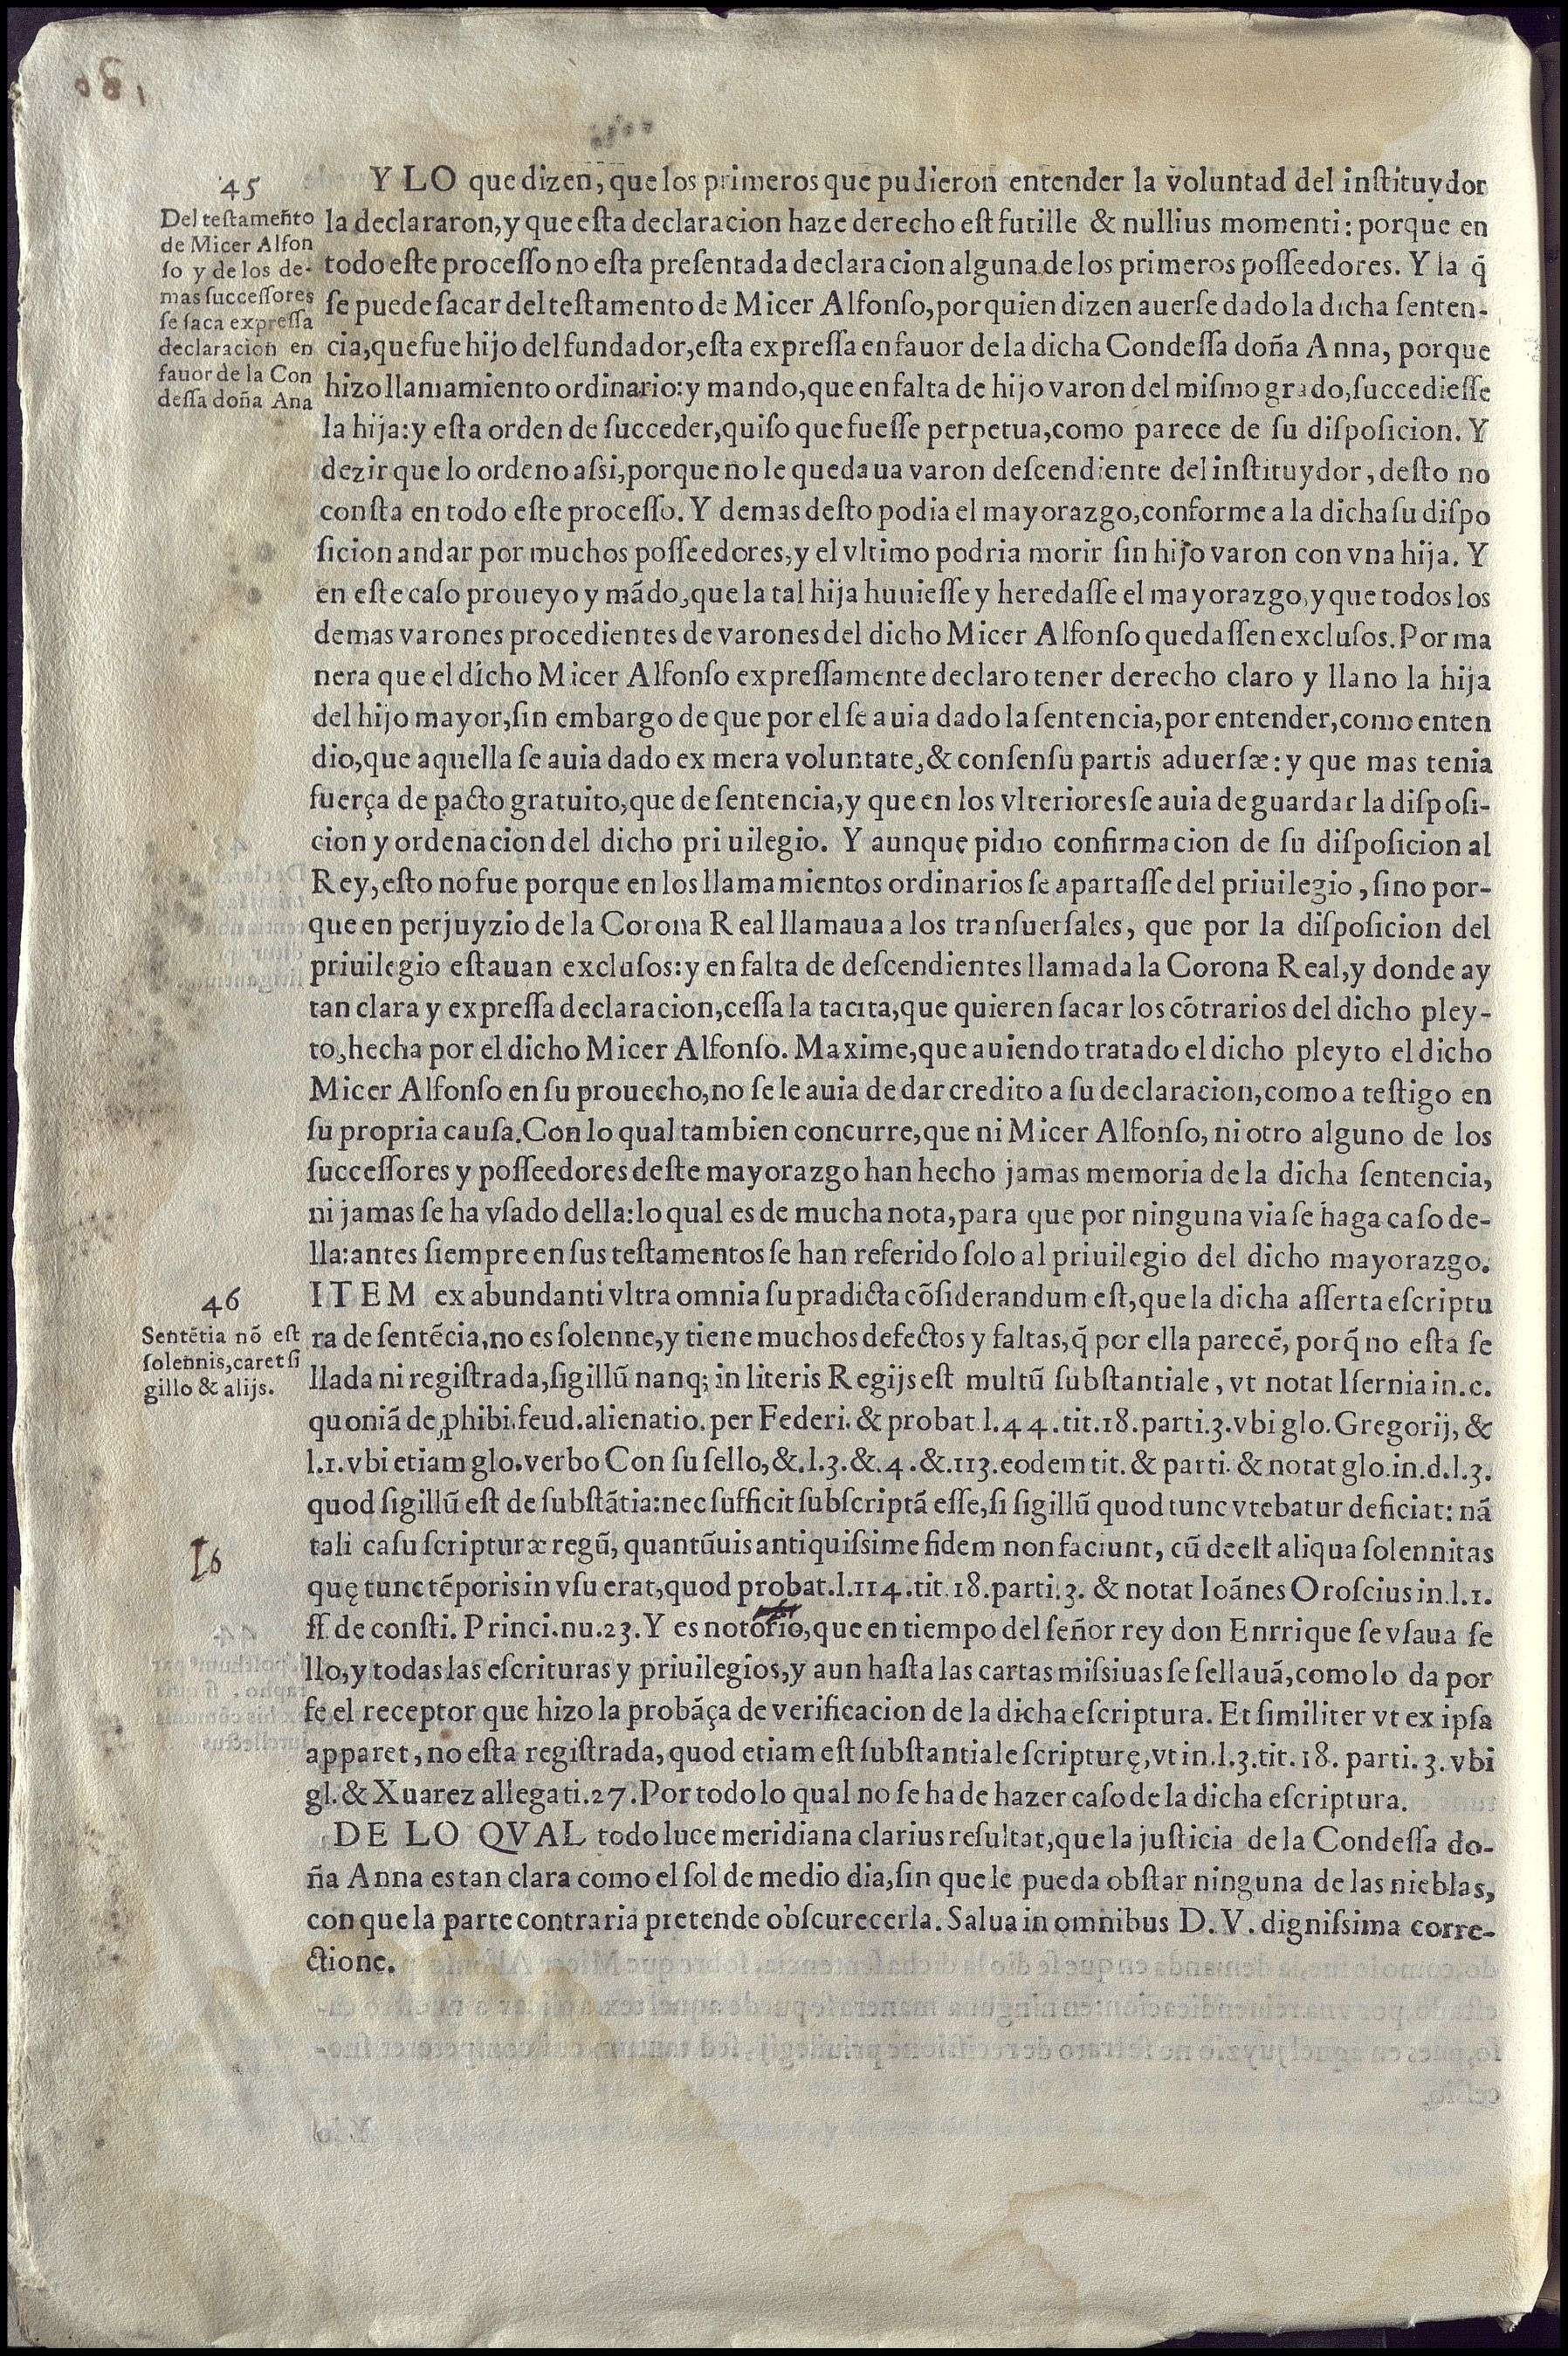 45
Del testamẽto
de Micer Alfon
ſo y de los de-
mas ſucceſſores
ſe ſaca expreſſa
declaracion en
fauor de la Con
deſſa doña Ana
Y LO que dizen, que los primeros que pudieron entender la voluntad del inſtituydor
la declararon, y que eſta declaracion haze derecho eſt futille & nullius momenti: porque en
todo eſte proceſſo no eſta preſentada declaracion alguna de los primeros poſſeedores. Y la q̃
ſe puede ſacar del teſtamento de Micer Alfonſo, por quien dizen auerſe dado la dicha ſenten-
cia, que fue hijo del fundador, eſta expreſſa en fauor de la dicha Condeſſa doña Anna, porque
hizo llamamiento ordinario: y mando, que en falta de hijo varon del miſmo grado, ſuccedieſſe
la hija: y eſta orden de ſucceder, quiſo que fueſſe perpetua, como parece de ſu diſpoſicion. Y
dezir que lo ordeno aſsi, porque no le quedaua varon deſcendiente del inſtituydor, deſto no
conſta en todo eſte proceſſo. Y demas deſto podia el mayorazgo, conforme a la dicha ſu diſpo
ſicion andar por muchos poſſeedores, y el vltimo podria morir ſin hijo varon con vna hija. Y
en eſte caſo proueyo y mãdo, que la tal hija huuieſſe y heredaſſe el mayorazgo, y que todos los
demas varones procedientes de varones del dicho Micer Alfonſo quedaſſen excluſos. Por ma
nera que el dicho Micer Alfonſo expreſſamente declaro tener derecho claro y llano la hija
del hijo mayor, ſin embargo de que por el ſe auia dado la ſentencia, por entender, como enten
dio, que aquella ſe auia dado ex mera voluntate, & conſenſu partis aduerſæ: y que mas tenia
fuerça de pacto gratuito, que de ſentencia, y que en los vlteriores ſe auia de guardar la diſpoſi-
cion y ordenacion del dicho priuilegio. Y aunque pidio confirmacion de ſu diſpoſicion al
Rey, eſto no fue porque en los llamamientos ordinarios ſe apartaſſe del priuilegio, ſino por-
que en perjuyzio de la Corona Real llamaua a los tranſuerſales, que por la diſpoſicion del
priuilegio eſtauan excluſos: y en falta de deſcendientes llamada la Corona Real, y donde ay
tan clara y expreſſa declaracion, ceſſa la tacita, que quieren ſacar los cõtrarios del dicho pley-
to, hecha por el dicho Micer Alfonſo. Maxime, que auiendo tratado el dicho pleyto el dicho
Micer Alfonſo en ſu prouecho, no ſe le auia de dar credito a ſu declaracion, como a teſtigo en
ſu propria cauſa. Con lo qual tambien concurre, que ni Micer Alfonſo, ni otro alguno de los
ſucceſſores y poſſeedores deſte mayorazgo han hecho jamas memoria de la dicha ſentencia,
ni jamas ſe ha vſado della: lo qual es de mucha nota, para que por ninguna via ſe haga caſo de-
lla: antes ſiempre en ſus teſtamentos ſe han referido ſolo al priuilegio del dicho mayorazgo.
46
Sentẽtia nõ eſt
ſolennis, caret ſi
gillo & alijs.
ITEM ex abundanti vltra omnia ſupradicta cõſiderandum eſt, que la dicha aſſerta eſcriptu
ra de ſentẽcia, no es ſolenne, y tiene muchos defectos y faltas, q̃ por ella parecẽ, porq̃ no eſta ſe
llada ni regiſtrada, ſigillũ nanq; in literis Regijs eſt multũ ſubſtantiale, vt notat Iſernia in. c.
quoniã de ꝓhibi. feud. alienatio. per Federi. & probat l. 44. tit. 18. parti. 3. vbi glo. Gregorij, &
l. 1. vbi etiam glo. verbo Con ſu ſello, &. l. 3. &. 4. &. 113. eodem tit. & parti. & notat glo. in. d. l. 3.
quod ſigillũ eſt de ſubſtãtia: nec ſufficit ſubſcriptã eſſe, ſi ſigillũ quod tunc vtebatur deficiat: nã
tali caſu ſcripturæ regũ, quantũuis antiquiſsime fidem non faciunt, cũ deeſt aliqua ſolennitas
16
quę tunc tẽporis in vſu erat, quod probat. l. 114. tit. 18. parti. 3. & notat Ioãnes Oroſcius in. l. 1.
ff. de conſti. Princi. nu. 23. Y es notorio, que en tiempo del ſeñor rey don Enrrique ſe vſaua ſe
llo, y todas las eſcrituras y priuilegios, y aun haſta las cartas miſsiuas ſe ſellauã, como lo da por
fe el receptor que hizo la probãça de verificacion de la dicha eſcriptura. Et ſimiliter vt ex ipſa
apparet, no eſta regiſtrada, quod etiam eſt ſubſtantiale ſcripturę, vt in. l. 3. tit. 18. parti. 3. vbi
gl. & Xuarez allegati. 27. Por todo lo qual no ſe ha de hazer caſo de la dicha eſcriptura.
DE LO QVAL todo luce meridiana clarius reſultat, que la juſticia de la Condeſſa do-
ña Anna es tan clara como el ſol de medio dia, ſin que le pueda obſtar ninguna de las nieblas,
con que la parte contraria pretende obſcurecerla. Salua in omnibus D. V. digniſsima corre-
ctione.